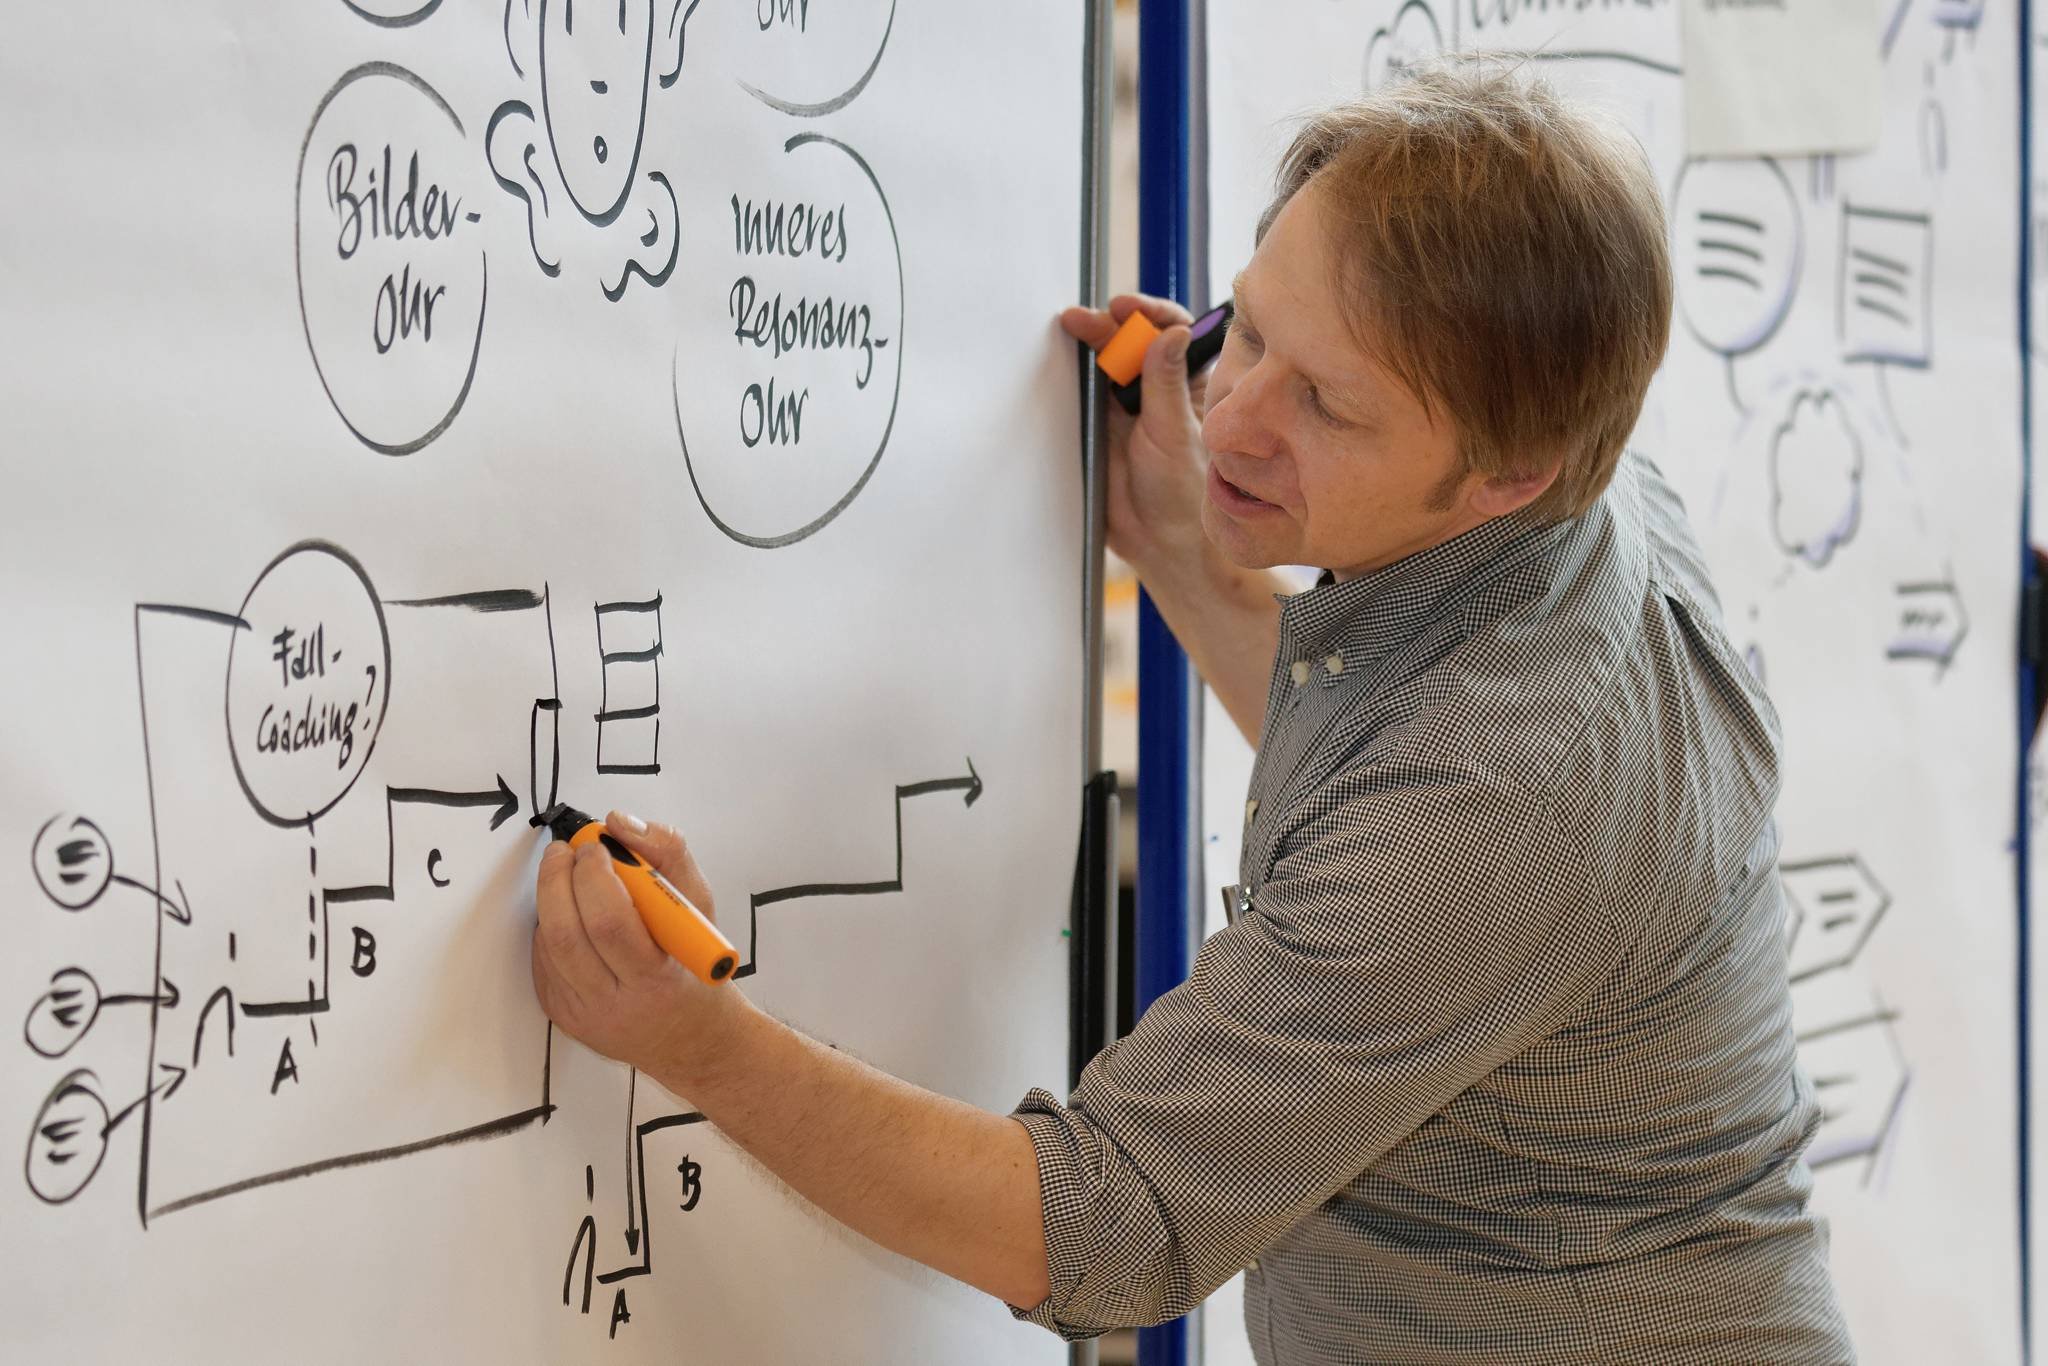 Ohr
Bilder-
Ohr
Inneres
Resonanz-
Ohr
Fall-
Coaching?
C
B
A
B
A